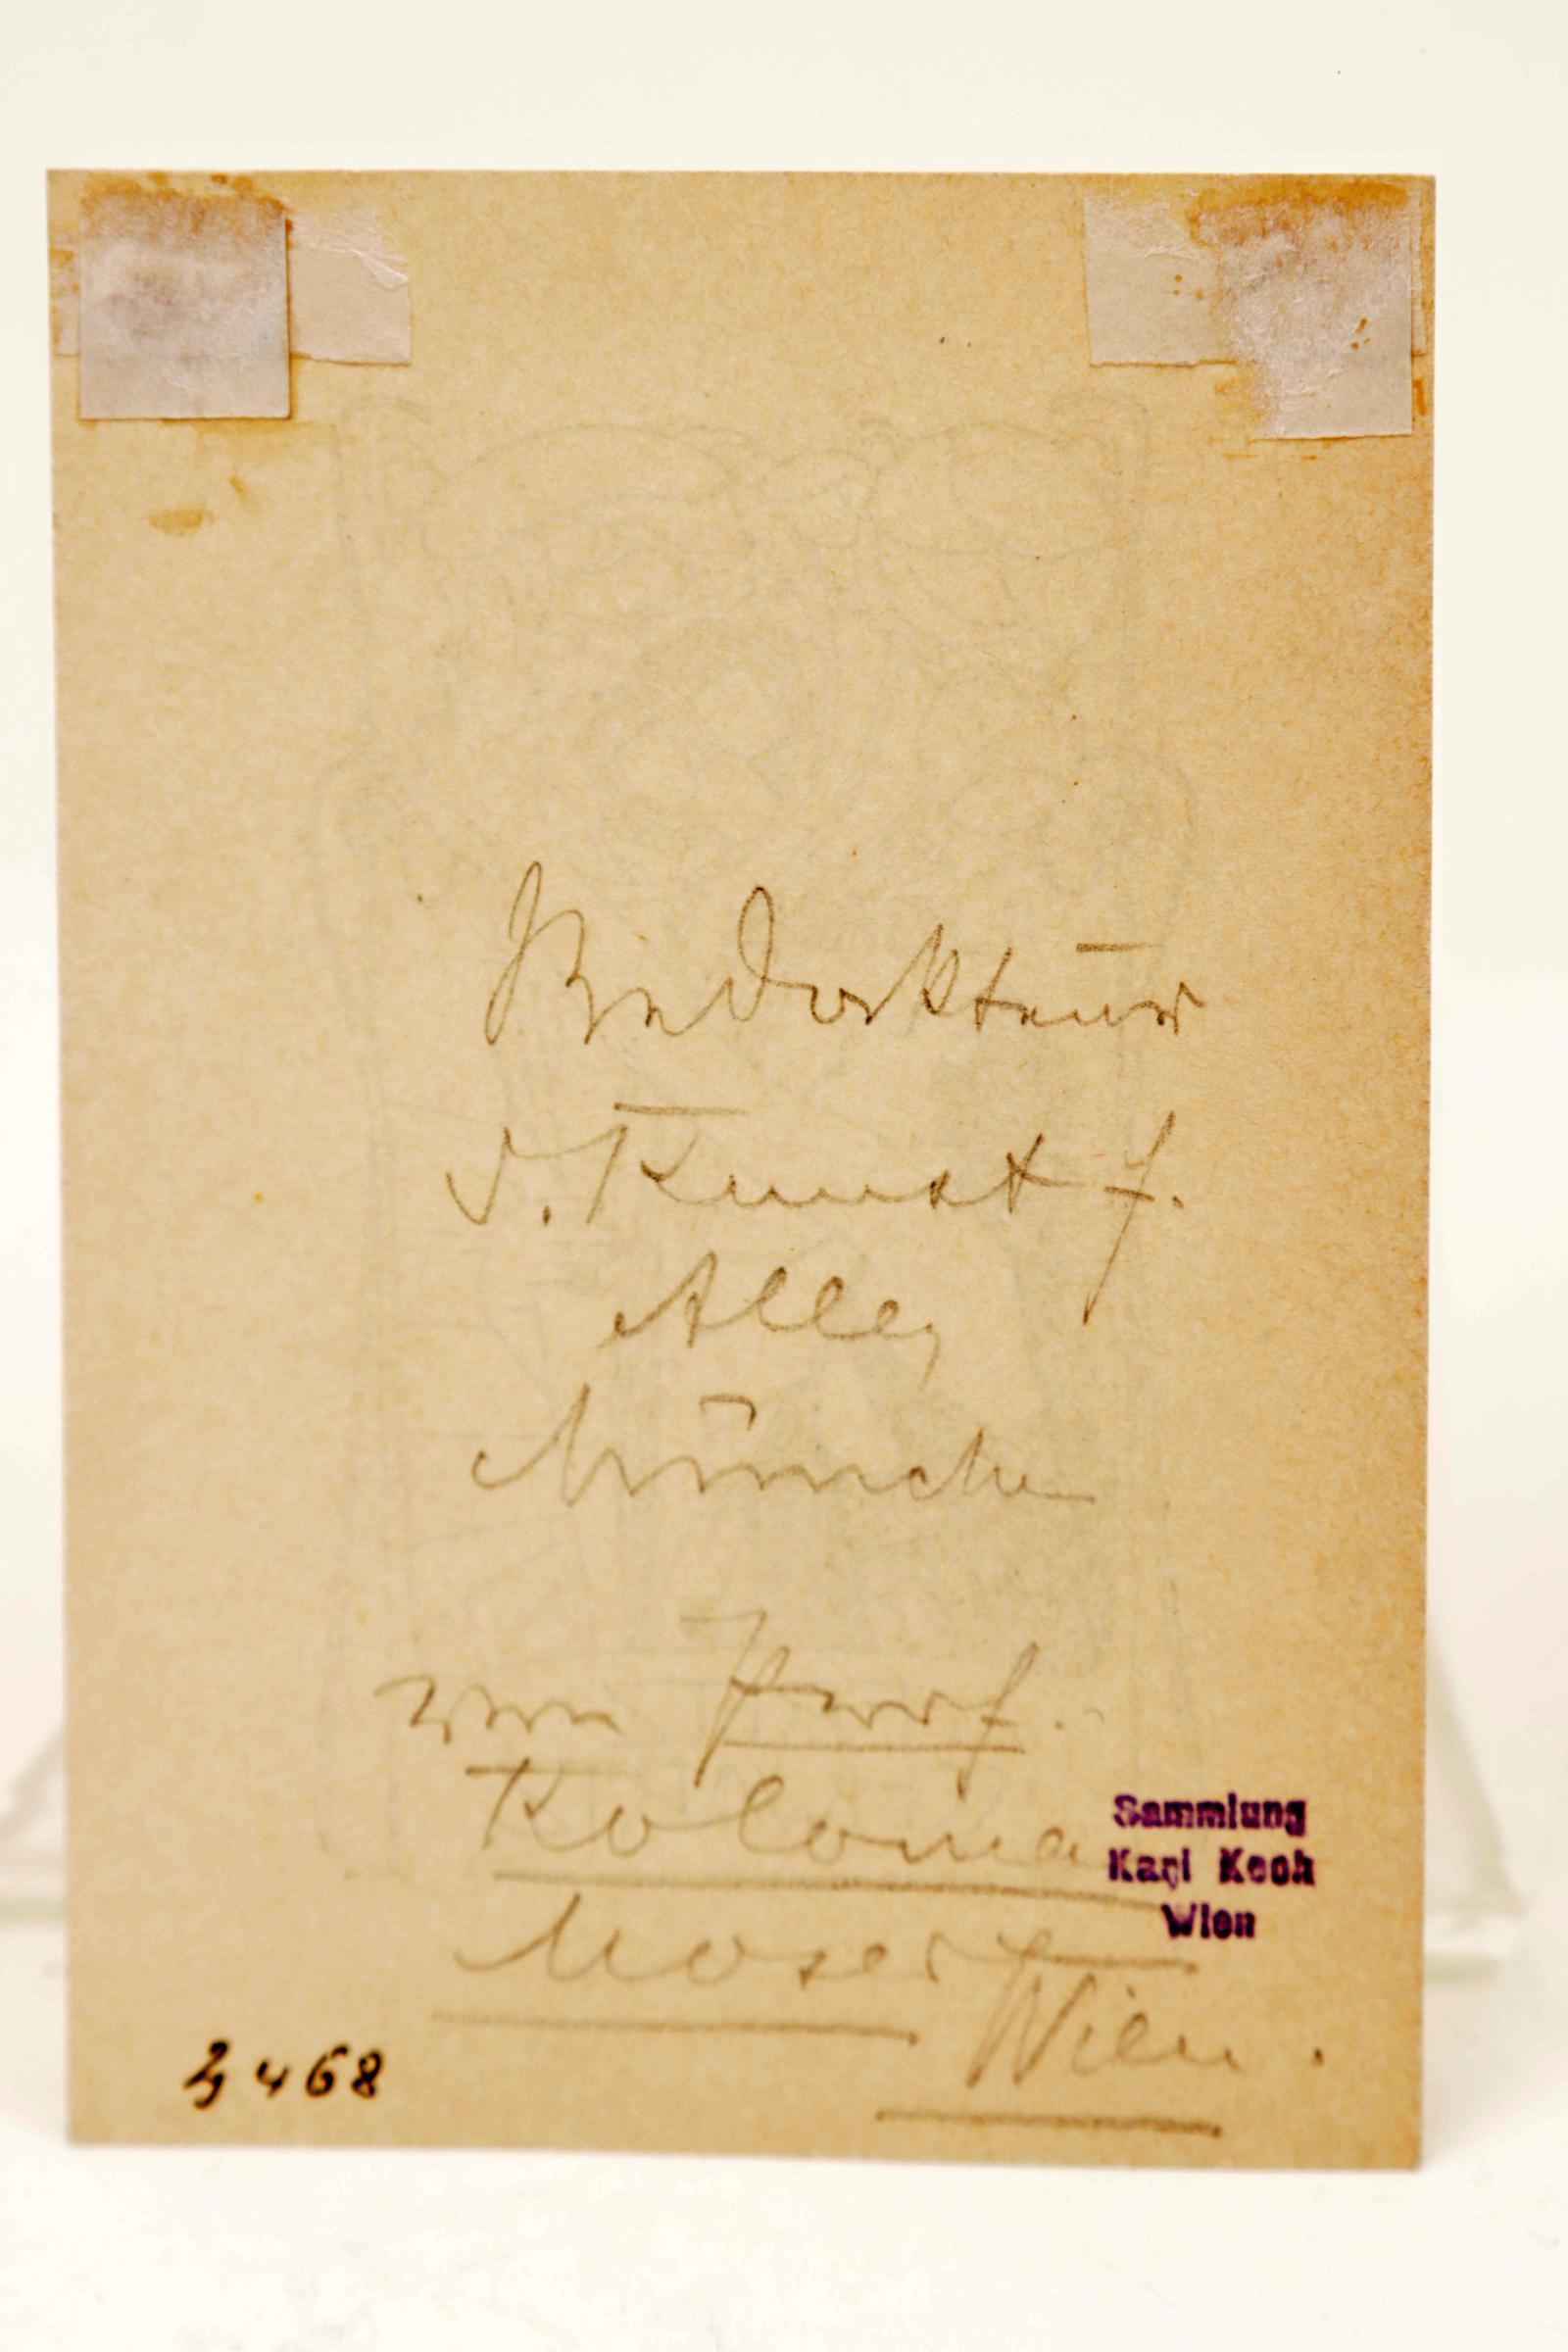 Redakteur
d. Kunst f.
Alle,
München
von Prof.
Koloma
Moser
Wien.
Sammlung
Karl Koch
Wien
3468